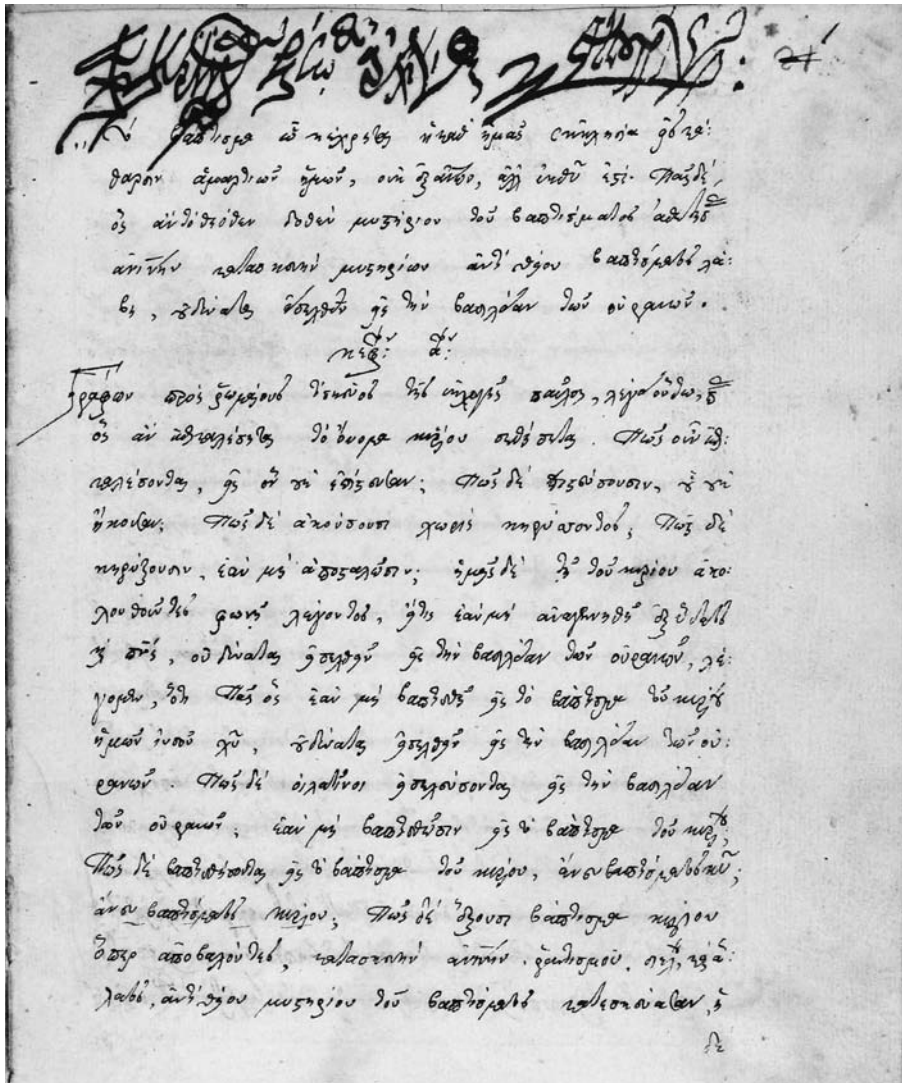 βάπτισμα ὦ κέχρηται ἡ καθ' ἡμᾶς ἐκκλησία εἰς κά:
θαρσιν ἁμαρτιῶν ἡμῶν, οὐκ ἐξ ἀνων, ἀλλ' ἐκ θυ ἐστί. Πᾶς δέ,
ὃς ἀντὶ θεόθεν δοθὲν μυστήριον τοῦ βαπτίσματος
μυστηρίων ἀντὶ θείου βαπτίσματος λά:
βῃ, οὐ δύναται εἰσελθεῖν εἰς τὴν βασιλείαν τῶν οὐρανῶν.
κεφ: α:
Γράφων πρὸς ῥωμαίους τὸ σκεῦος τῆς ἐκλογῆς παῦλος, λέγει οὕτω,
ὃς ἂν ἐπικαλέσηται τὸ ὄνομα κυρίου σωθήσεται. Πῶς οὖν ἐπι:
καλέσονται, εἰς ὃν οὐκ ἐπίστευσαν; Πῶς δὲ πιστεύσουσιν, οὗ οὐκ
ἤκουσαν; Πῶς δὲ ἀκούσουσι χωρὶς κηρύσσοντος; Πῶς δὲ
κηρύξουσιν, ἐὰν μὴ ἀποσταλῶσιν; ἡμεῖς δὲ τῇ τοῦ κυρίου ἀκο:
λουθοῦντες φωνῇ λέγοντος, ὅτι ἐὰν μὴ ἀναγεννηθῇ ἐξ ὕδατος
καὶ πνς, οὐ δύναται εἰσελθεῖν εἰς τὴν βασιλείαν τῶν οὐρανῶν, λέ:
γομεν, ὅτι Πᾶς ὃς ἐὰν μὴ βαπτισθῇ εἰς τὸ βάπτισμα τοῦ κυρίου
ἡμῶν ἰησοῦ χυ, οὐ δύναται εἰσελθεῖν εἰς τὴν βασιλείαν τῶν οὐ:
ρανῶν. Πῶς δὲ οἱ λατῖνοι εἰσελεύσονται εἰς τὴν βασιλείαν
τῶν οὐρανῶν; ἐὰν μὴ βαπτισθῶσιν εἰς τὸ βάπτισμα τοῦ κυρίου;
Πῶς δὲ βαπτισθήσονται εἰς τὸ βάπτισμα τοῦ κυρίου, ἄνευ βαπτίσματος κυ;
ἄνευ βαπτίσματος κυρίου; Πῶς δὲ ἕξουσι βάπτισμα κυρίου
ὅπερ ἀποβαλόντες,
ἀντὶ θείου μυστηρίου τοῦ βαπτίσματος κατεσκεύασαν,
δὲ